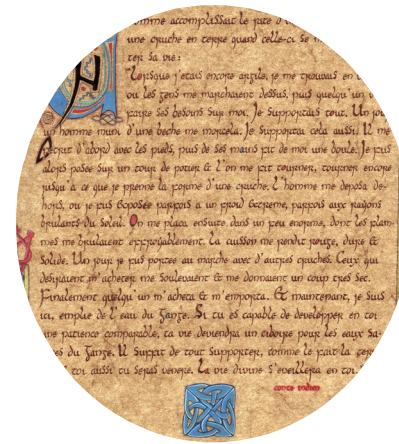 omme accomplissait le rite d
une cruche en terre quand celle-ci se m
ter sa vie :
"Lorsque j'étais encore argile, je me trouvais en
où les gens me marchaient dessus, puis quelqu'un
faire ses besoins sur moi. Je supportais tout. Un jou
un homme muni d'une bêche me morcela. Je supportai cela aussi. Il me
pétrit d'abord avec les pieds, puis de ses mains fit de moi une boule. Je fus
alors posée sur un tour de potier & l'on me fit tourner, tourner encore
jusqu'à ce que je prenne la forme d'une cruche. L'homme me déposa de-
hors, où je fus exposée parfois à un froid extrême, parfois aux rayons
brûlants du soleil. On me plaça ensuite dans un feu énorme, dont les flam-
mes me brûlaient effroyablement. La cuisson me rendit rouge, dure &
solide. Un jour je fus portée au marché avec d'autres cruches. Ceux qui
désiraient m'acheter me soulevaient & me donnaient un coup très sec.
Finalement quelqu'un m'acheta & m'emporta. Et maintenant, je suis
ici, emplie de l'eau du Gange. Si tu es capable de développer en toi
une patience comparable, ta vie deviendra un ciboire pour les eaux sa-
es du Gange. Il suffit de tout supporter, comme le fait la ter
toi aussi tu seras vénéré. La vie divine s'éveillera en toi.
conte indien